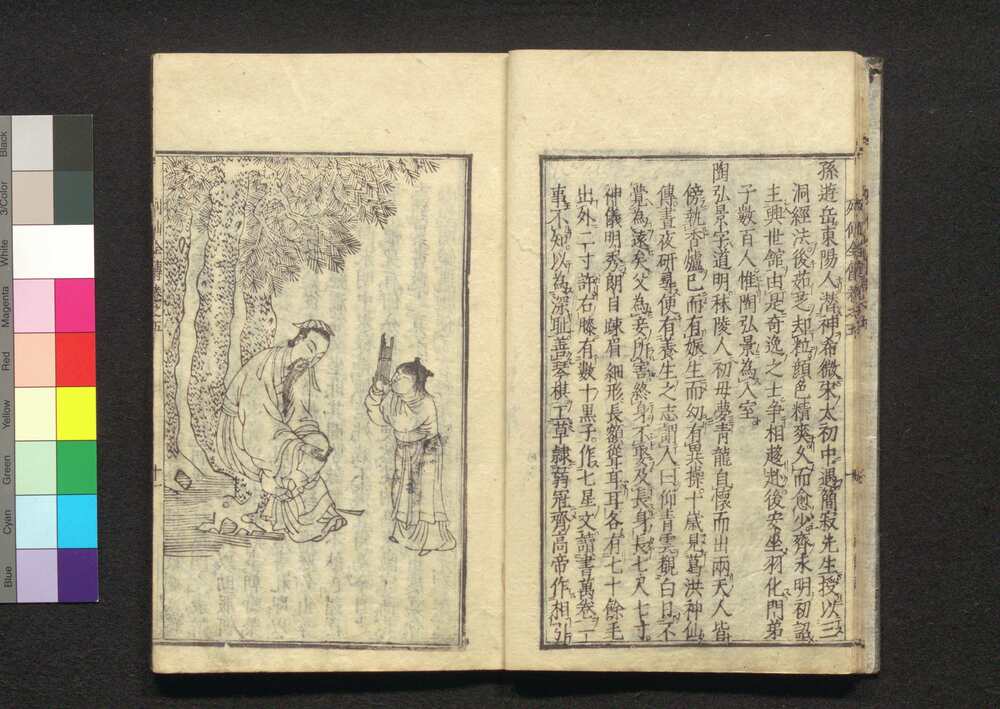 孫遊岳東陽人潛神希微宋太初中遇簡寂先生授以三
洞經法後茹芝却粒顔色精爽久而愈少齊永明初詔
主興世館由是奇逸之士争相趨赴後安坐羽化門弟
子數百人惟陶弘景為入室
陶弘景字道明秣陵人初母夢青龍自懐而出兩天人皆
傍執香爐已而有娠生而幼有異操十歳見葛洪神仙
傳晝夜研尋便有養生之志謂人曰仰青雲覩白日不
覺為遠矣父為妾所害終身不娶及長身長七尺七寸
神儀明秀朗目疎眉細形長額聳耳耳各有七十餘毛
出外二寸許右膝有數十黒子作七星文讀書萬卷一
事不知以為深耻善琴棋工草隷弱冠齊高帝作相引
列仙全傳卷之五
十一
Black
3/Color
White
Magenta
Red
Yellow
Green
Cyan
Blue